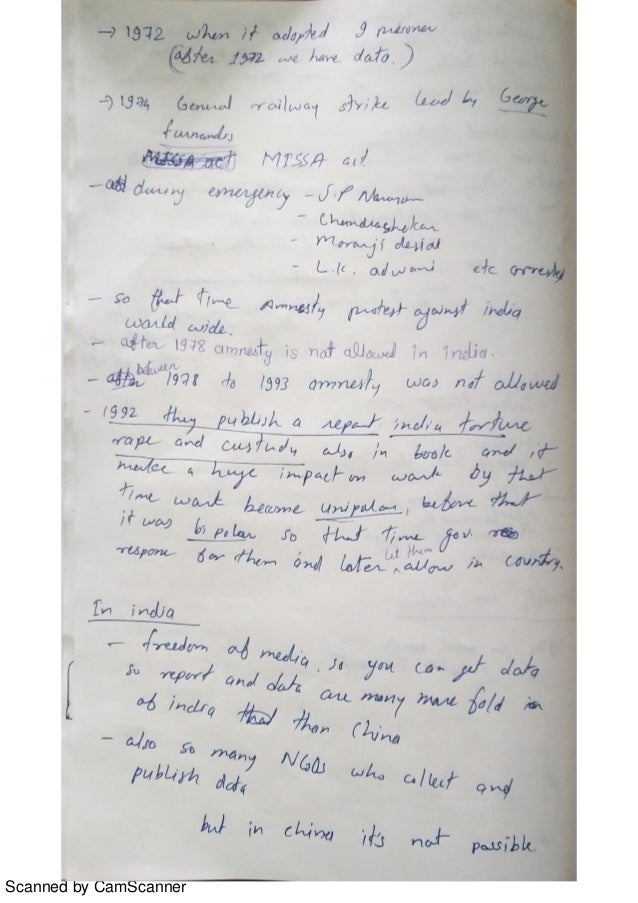 → 1972 when it adopted 9 prisoner
(after 1972 we have data.)
→ 1974 General railway strike lead by George
furnandis
MISSA act MISSA act
- during emergency - J.P Narayan
- Chandrashekar
- Moraji desiai
- L.K. adwani etc arrested
- so that time Amnesty protest against india
world wide.
- after 1978 amnesty is not allowed in india.
- between 1978 to 1993 amnesty was not allowed
- 1992 they publish a repart india torture
rape and custudy also in book and it
make a huge impact on wark by that
time wark become unipolar, before that
it was bi polar so that time gov.
respone for them and later let them allow in country.
In india
- freedom of media, so you can get data
so report and data are many more fold in
of india than China
- also so many NGOs who collect and
publish data
but in china it's not possible.
Scanned by CamScanner